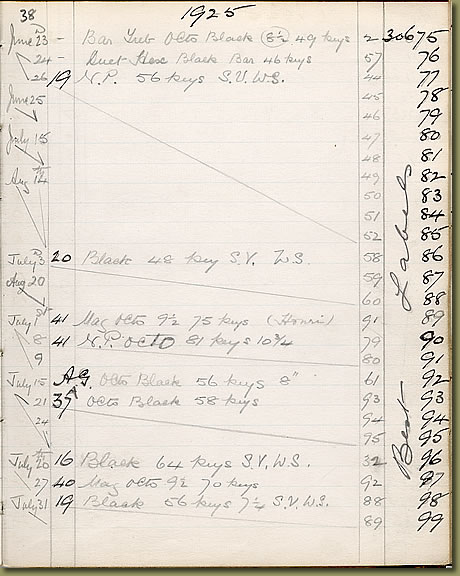 38 1925
June 23 - Bar Sub Octo Black (8½) 49 keys 2 30675
24 - Duet Hexo Black Bar 46 keys 57 76
26 19 N.P. 56 keys S.V. W.S. 44 77
June 25 45 78
46 79
July 15 47 80
48 81
Aug 14 49 82
50 83
51 84
52 85
July 3 20 Black 48 key S.V. W.S. 58 86
Aug 20 59 87
60 88
July 1st 41 Mag Octo 9½ 75 keys 91 89
8 41 N.P. Octo 81 keys 10¾ 79 90
9 80 91
July 15 A.G. Octo Black 56 keys 8" 61 92
21 37 Octo Black 58 keys 93 93
24 94 94
95 95
July 20 16 Black 64 keys S.V. W.S. 32 96
27 40 Mag Octo 9½ 70 keys 92 97
July 31 19 Black 56 keys 7¼ S.V. W.S. 88 98
89 99
Best Labels